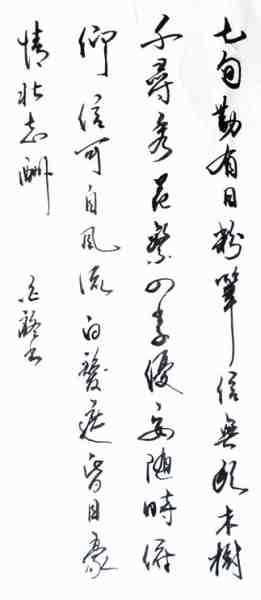 七旬勤有日粉筆信無木樹
千尋秀花繁四季優安隨時俯
仰信可自風流白髮遮眉目豪
情壯志酬